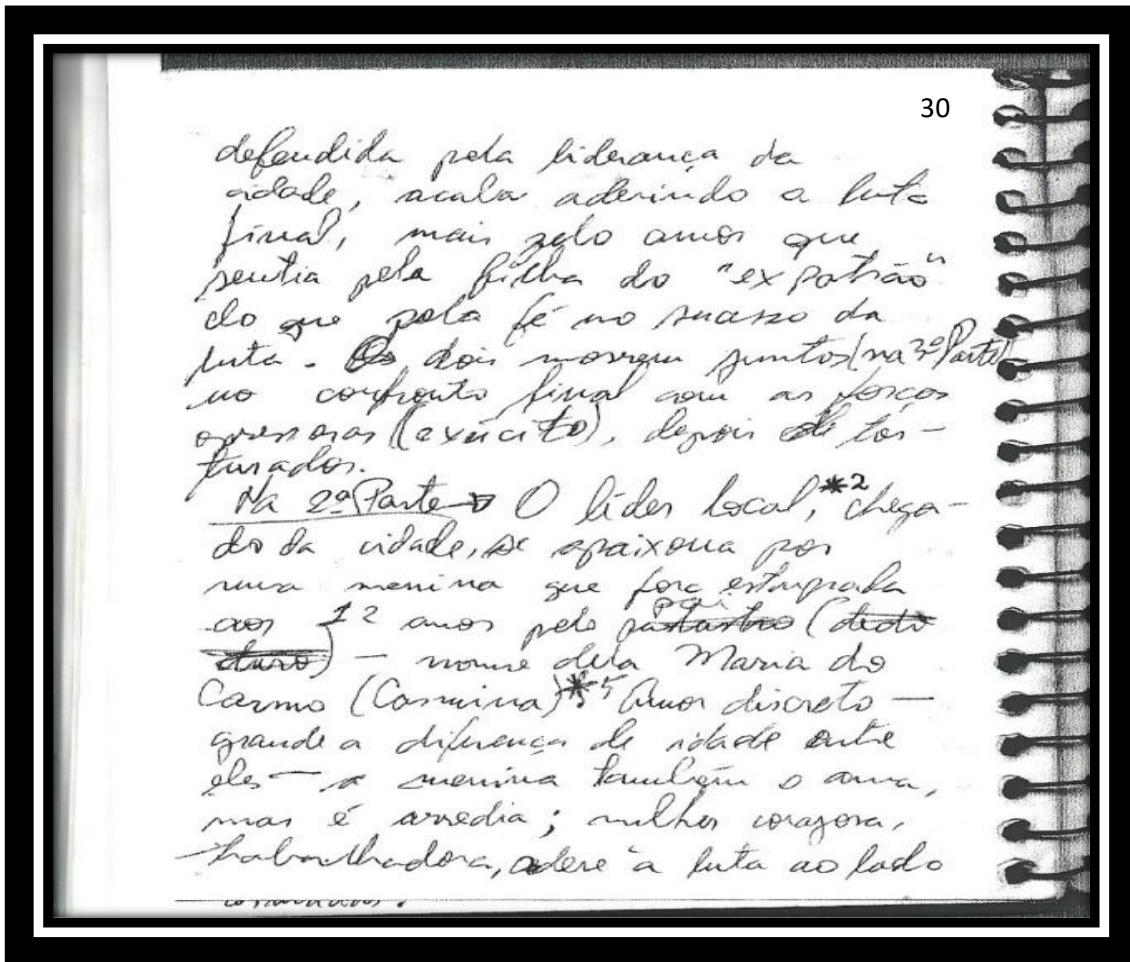 30
defendida pela liderança da
cidade, acaba aderindo a luta
final, mais pelo amor que
sentia pela filha do "ex patrão"
do que pela fé no sucesso da
luta. Os dois morrem juntos (na 3ª Parte)
no confronto final com as forças
opressoras (exército), depois de tor-
turados.
Na 2ª Parte → O líder local, *2 chega-
do da cidade, se apaixona por
uma menina que fora estuprada
aos 12 anos pelo pai padrasto (dedo
duro) — nome dela Maria do
Carmo (Carmina) *5 Amor discreto —
grande a diferença de idade entre
eles — a menina também o ama,
mas é arredia; mulher corajosa,
trabalhadora, adere a luta ao lado